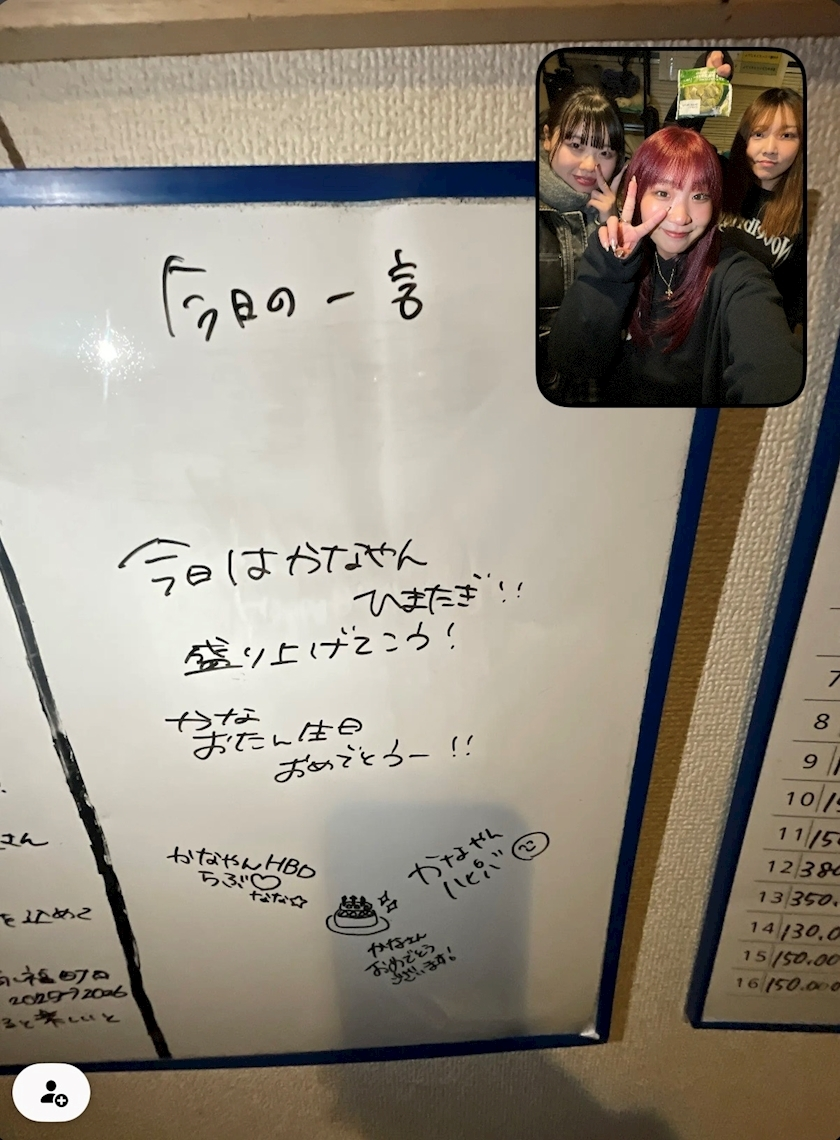 今日の一言
今日はかなやん
ひまたぎ!!
盛り上げてこう!
かな
おたん生日
おめでとうー!!
かなやんHBD
らぶ♡
なな☆
かなやん
ハピバ
かなさん
おめでとう
ございます!
さん
を込めて
2025→2026
ると楽しいと
7
8
9
10
11 150
12 380
13 350.
14 130.0
15 150.00
16 150.000